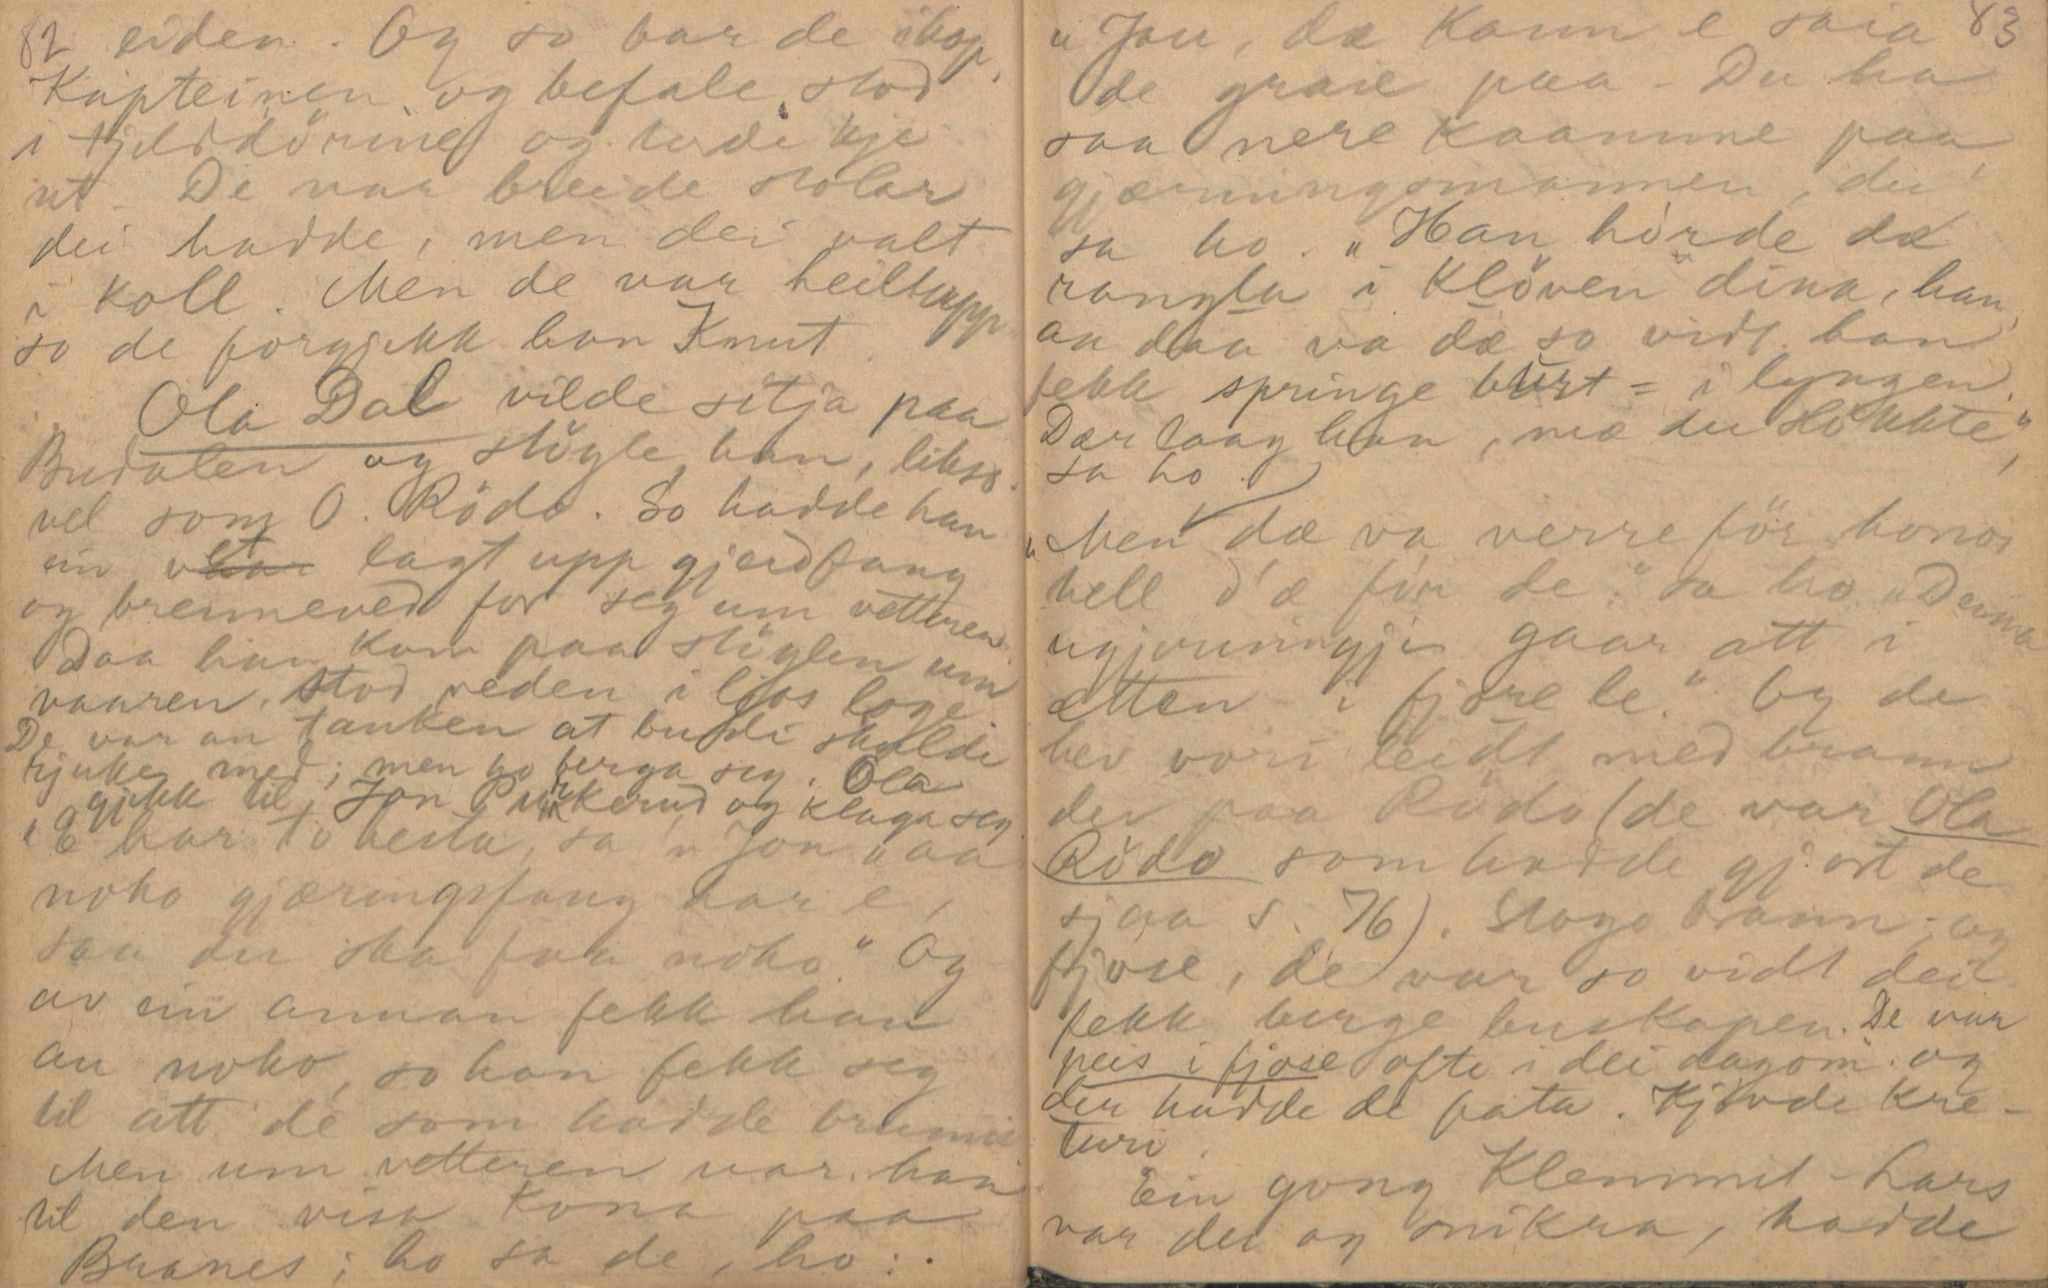 82 eiden. Og so bar de ihop.
Kapteinen og befale stod
i tjelddörine og lydde kje
ut. De var breide stolar
dei hadde, men dei valt
i koll. Men de var heilt upp
so de forgjekk han Knut.
Ola Dal vilde sitja paa
Budalen og stögle, han, likso
vel som O. Rödö. So hadde han
ein lagt upp gjerdfang
og brenneved for seg um vetteren.
Daa han kom paa stöglen um
vaaren, stod veden i ljos loge.
De var an tanken at budi skulde
rjuke med; men ho berga seg. Ola
gjekk til Jon Purkerud og klaga seg.
"E har to hesta, sa'n Jon "aa
noko gjæringsfang har e,
saa du ska faa noko." Og
av ein annan fekk han
au noko, so han fekk seg
til att de som hadde brunni
Men um vetteren var han
til den visa kona paa
Branes; ho sa de, ho:
83
"Jau, dæ kann e saia
de graie paa - Du ha
saa nere kaamme paa
gjærningsmannen, du"
sa ho. "Han hörde dæ
rangla i klöven dina, han,
aa daa va dæ so vidt han
fekk springe burt = i lyngen.
Dær laag han, mæ du slökkte",
sa ho.
"Men dæ va verre för honom
hell d'æ för de." sa ho "Denna
ugjerningji gaar att i
ætten i fjore le." Og de
hev vori leidt med brann
der paa Rödö (de var Ola
Rödö som hadde gjort de
sjaa s. 76). Stogo brann og
fjose, de var so vidt dei
fekk berge buskapen. De var
peis i fjose ofte i dei dagom og
der hadde de pata. Kjövde kre-
turi.
Ein gong Klemmet-Lars
var der og snikra, hadde